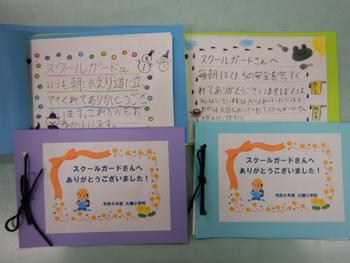 スクールガードさん
いつも朝とかえり道に立
ってくれてありがとうご
ざいます。これからもお
ねがいします。
スクールガードさんへ
毎朝ぼくたちの安全を守ってく
れてありがとうございます。ぼくは
スクールガードさんへ
ありがとうございました!
令和6年度 大幡小学校
スクールガードさんへ
ありがとうございました!
令和6年度 大幡小学校